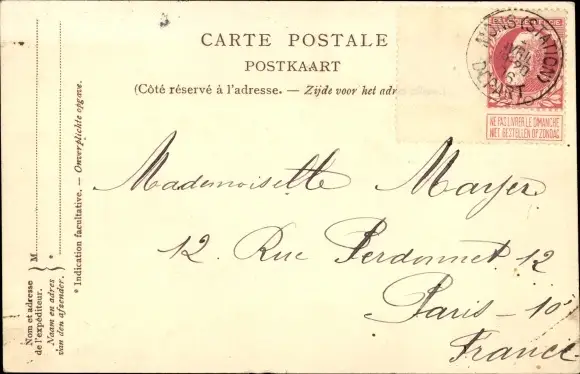 CARTE POSTALE
POSTKAART
(Côté réservé à l'adresse. — Zijde voor het adr
MONS (STATION)
AVRIL
6
DÉPART
NE PAS LIVRER LE DIMANCHE
NIET BESTELLEN OP ZONDAG
Mademoiselle Mayer
12. Rue Perdonnet 12
Paris - 10
France
M
*
Nom et adresse
de l'expéditeur.
Naam en adres
van den afzender.
* Indication facultative. — Onverplichte opgave.